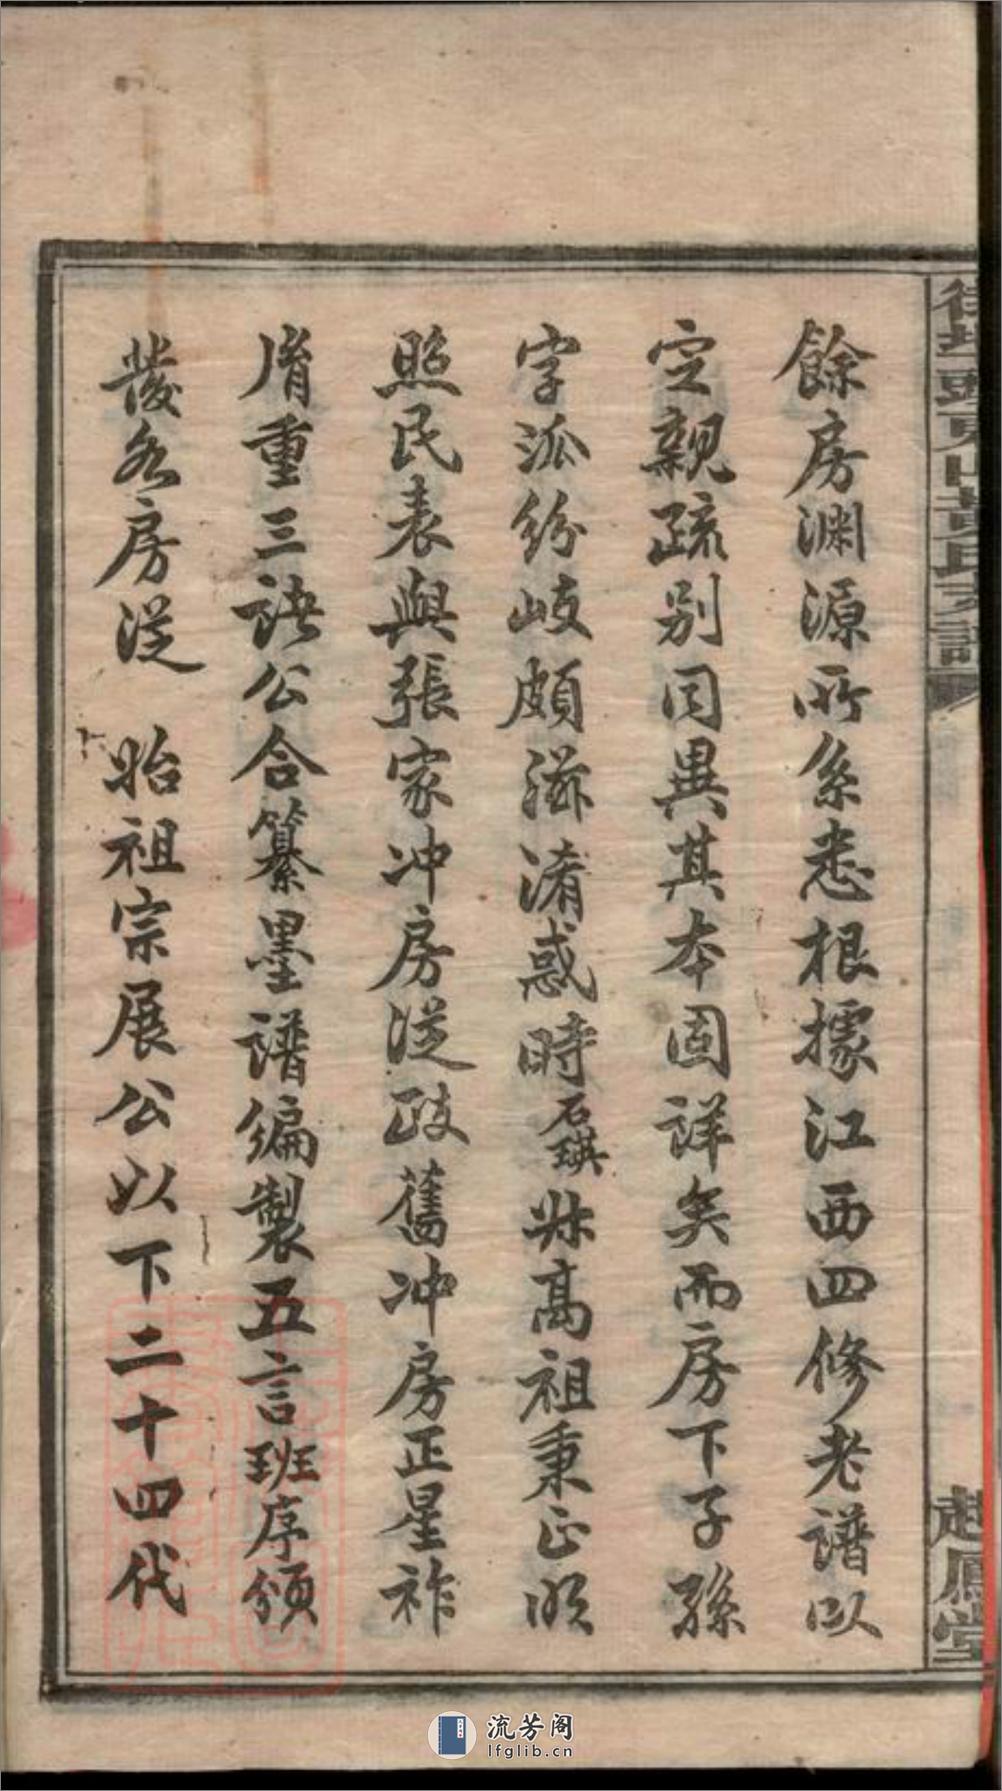 餘房渊源所系悉根據江西四修老譜以
定親疏别同異其本固詳矣而房下子孫
字派紛歧頗滋淆惑時石琪叔高祖秉正
照民表與張家冲房从政舊冲房正星祚
隋重三諸公合纂墨譜編製五言班序頒
發各房从 始祖宗展公以下二十四代
頭東山黄氏支譜
起鳳堂
流芳阁
lfglib.cn